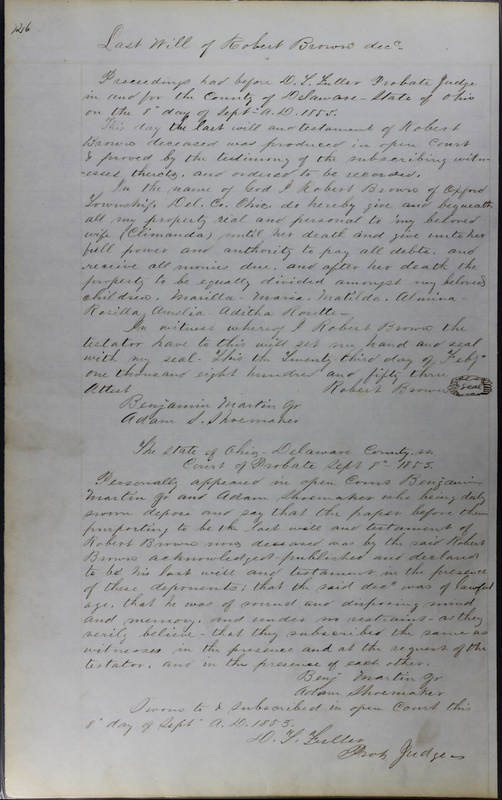 126
Last Will of Robert Brown decd.
Proceedings had before D. T. Fuller Probate Judge
in and for the County of Delaware - State of Ohio
on the 8" day of Sept- A. D. 1853.
This day the last will and testament of Robert
Brown deceased was produced in open Court
& proved by the testimony of the subscribing witn-
esses thereto, and ordered to be recorded.
In the name of God I Robert Brown of Oxford
Township, Del. Co. Ohio, do hereby give and bequeath
all my property real and personal to my beloved
wife (Climanda) until her death and give unto her
full power and authority to pay all debts, and
receive all monies due, and after her death the
property to be equally divided amongst my beloved
children, Marilla- Maria, Matilda, Almina-
Rosilla, Amelia Aditha Rosette-
In witness whereof I Robert Brown the
testator have to this will set my hand and seal
with my seal- This the Twenty third day of Feby
one thousand eight hundred and fifty three
Attest Robert Brown seal
Benjamin Martin Jr
Adam S. Shoemaker
The State of Ohio- Delaware County, ss
Court of Probate Sept 8" 1853.
Personally appeared in open Court Benjamin
Martin Jr and Adam Shoemaker who being duly
sworn depose and say that the paper before them
purporting to be the last will and testament of
Robert Brown now deceased was by the said Robert
Brown acknowledged published and declared
to be his last will and testament in the presence
of these deponents; that the said decd was of lawful
age, that he was of sound and disposing mind
and memory, and under no restraint- as they
verily believe- that they subscribed the same as
witnesses in the presence and at the request of the
testator, and in the presence of each other.
Benj Martin Jr
Adam Shoemaker
Sworn to & subscribed in open Court this
8" day of Sept A. D. 1853.
D. T. Fuller
Prob Judge